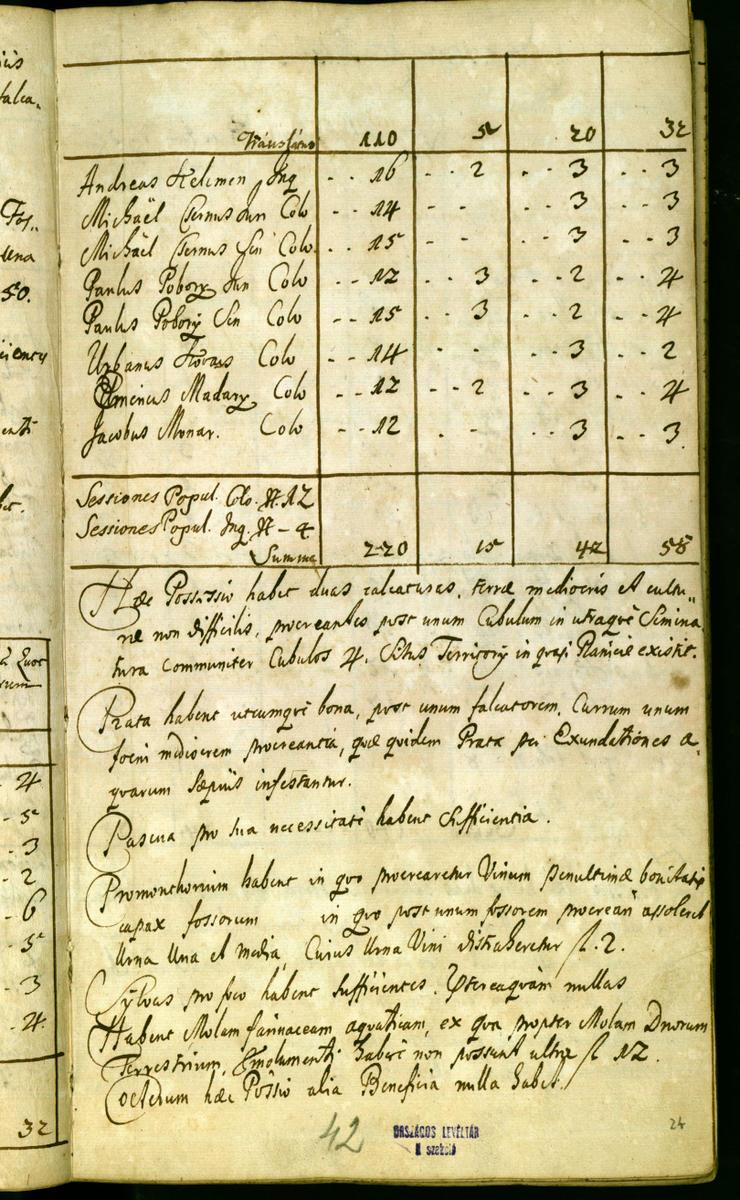 110 5 20 32
Andreas Helemen Inq - - 16 - - 2 - - 3 - - 3
Michaël Csernus Jun Colo - - 14 - - - - 3 - - 3
Michaël Csernus Sen Colo - - 15 - - - - 3 - - 3
Paulus Pobory Jun Colo - - 12 - - 3 - - 2 - - 4
Paulus Pobory Sen Colo - - 15 - - 3 - - 2 - - 4
Urbanus Kovacs Colo - - 14 - - - - 3 - - 2
Emericus Madary Colo - - 12 - - 2 - - 3 - - 4
Jacobus Molnar. Colo - - 12 - - - - 3 - - 3
Sessiones Popul. Colo. N. 12
Sessiones Popul. Inq. N - 4
Summa 220 15 42 58
Hæc Possessio habet duas calcaturas, terræ mediocris et cultu-
ræ non difficilis, procreantes post unum Cubulum in utraque Semina
tura communiter Cubulos 4. Situs Territorij in quasi Planicie existit.
Prata habent utcumque bona, post unum falcatorem, Currum unum
foeni mediocrem procreantia, quæ quidem Prata per Exundationes a-
quarum Sæpius infestantur.
Pascua pro sua necessitate habent Sufficientia.
Promonthorium habent in quo procrearetur Vinum penultimæ bonitatis
capax fossorum in quo post unum fossorem procreari assoleret
Urna Una et media, Cuius Urna Vini distraheretur fl. 2.
Sylvas pro foco habent Sufficientes. Prætereaquàm nullas
Habent Molam farinaceam aquaticam, ex qua propter Molam Dnorum
Terrestrium, Emolumenti habere non possunt ultra fl 12.
Coeterum hæc Possio alia Beneficia nulla habet.
42
ORSZÁGOS LEVÉLTÁR
II szekció
24
4
5
3
2
6
5
3
4
32